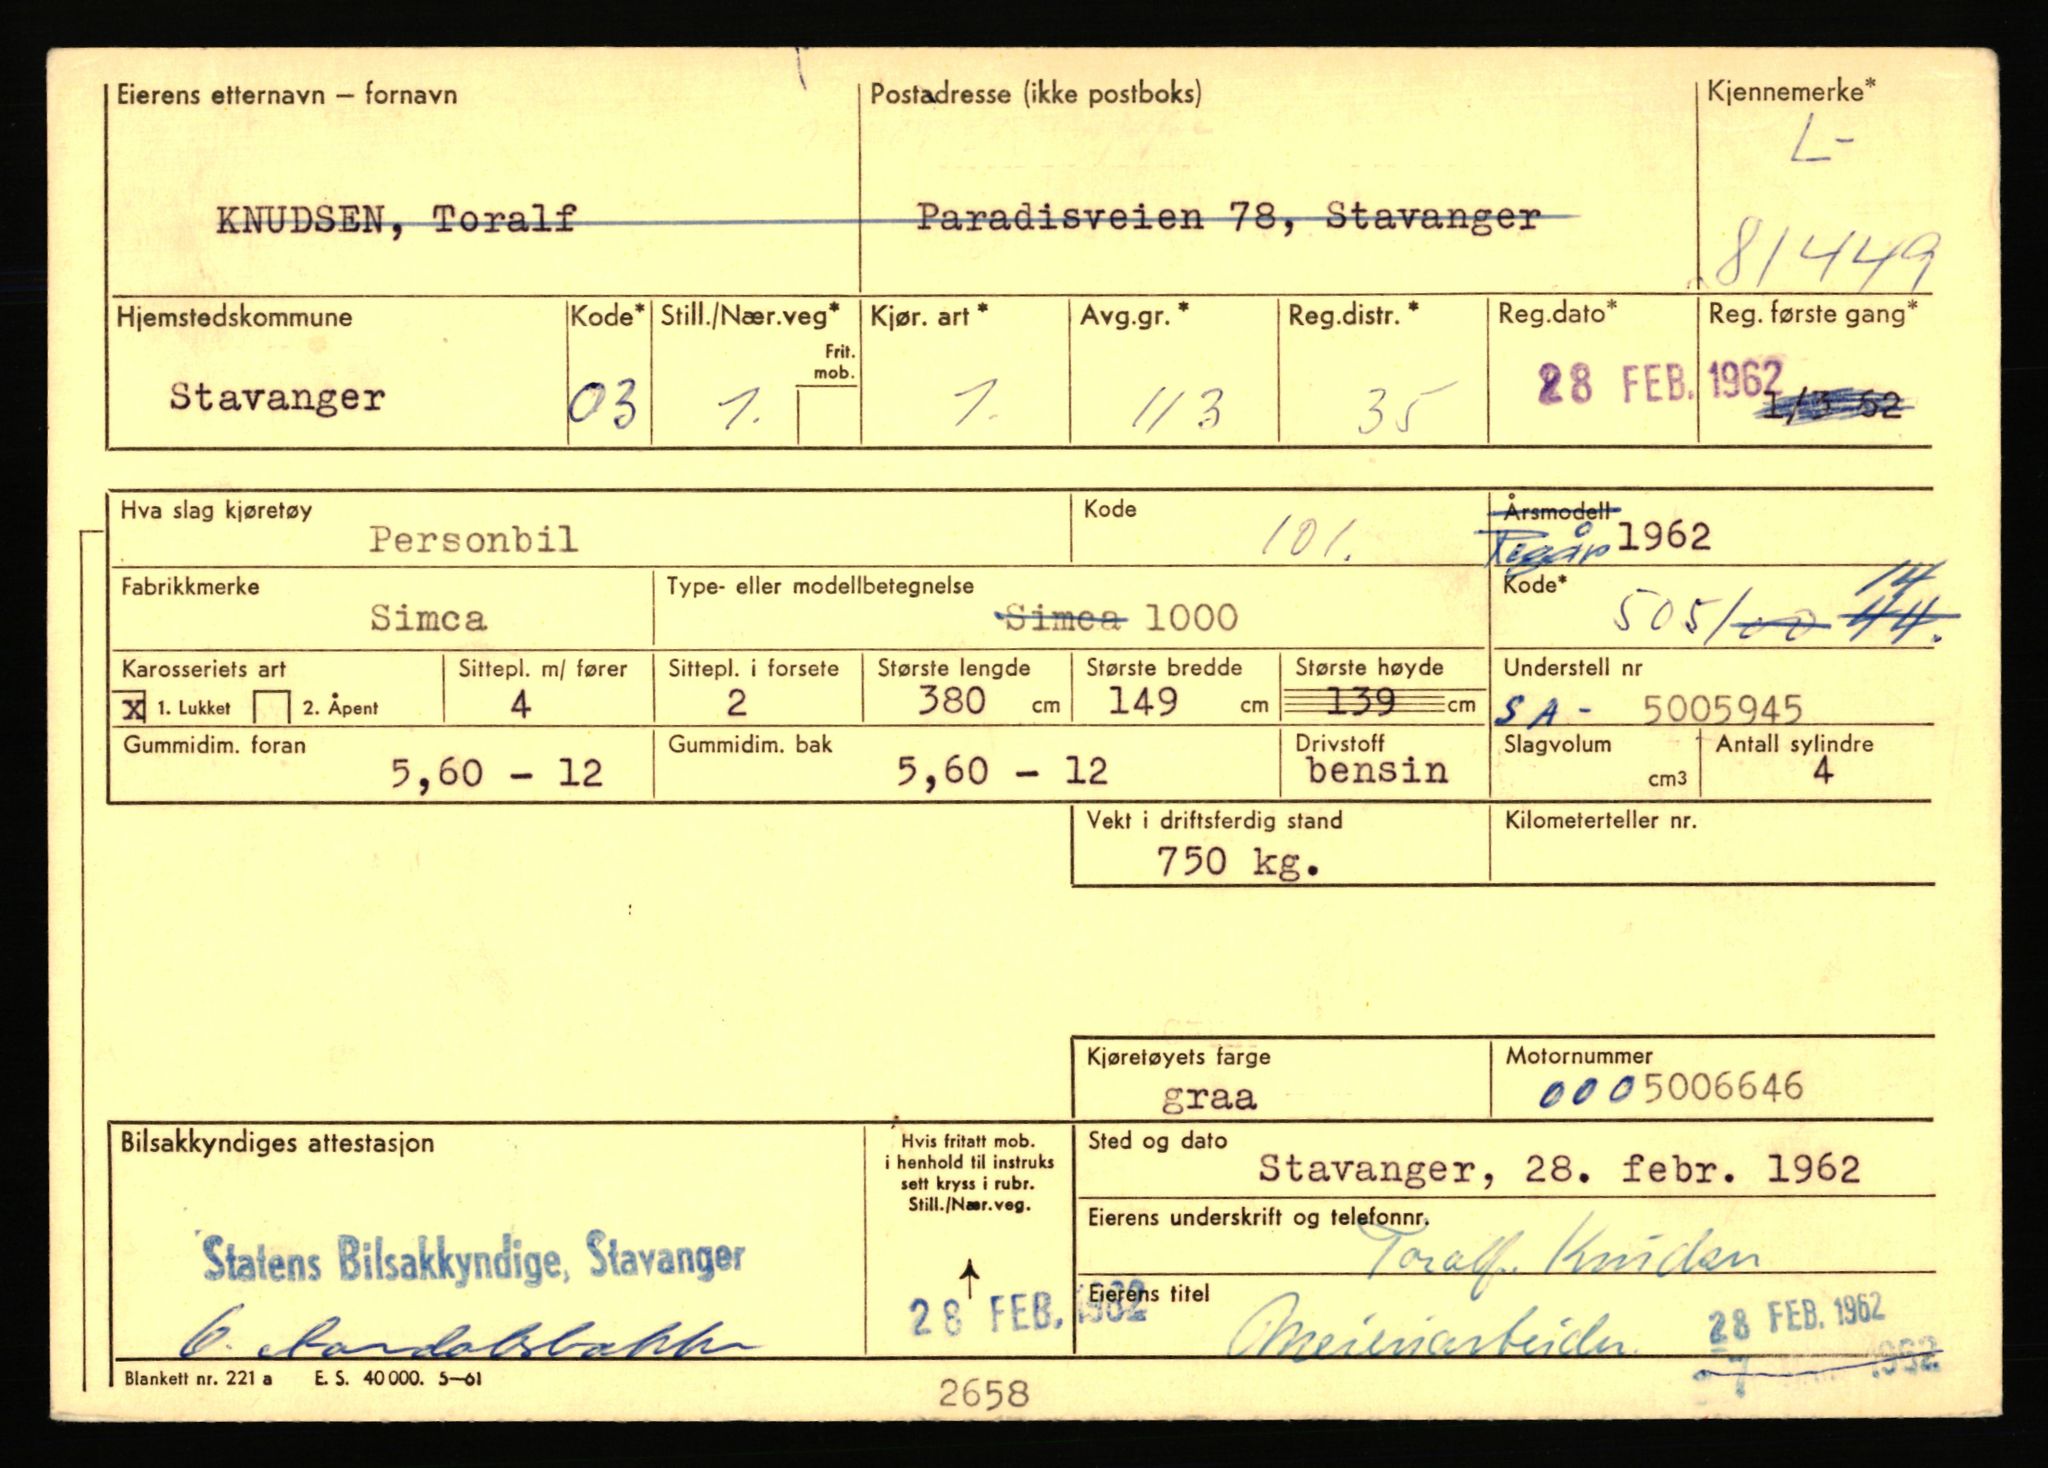 Eierens etternavn – fornavn
Postadresse (ikke postboks)
Kjennemerke*
L-
KNUDSEN, Toralf
Paradisveien 78, Stavanger
81449
Hjemstedskommune
Kode*
Still./Nær.veg*
Kjør. art *
Avg.gr. *
Reg.distr. *
Reg.dato*
Reg. første gang*
Frit.
mob.
Stavanger
03
1.
1.
113
35
28 FEB. 1962
1/3 62
Hva slag kjøretøy
Personbil
Kode
101.
Årsmodell
Regår 1962
Fabrikkmerke
Simca
Type- eller modellbetegnelse
Simca 1000
Kode*
14
505/00 44.
Karosseriets art
x 1. Lukket 2. Åpent
Sittepl. m/ fører
4
Sittepl. i forsete
2
Største lengde
380 cm
Største bredde
149 cm
Største høyde
139 cm
Understell nr
SA- 5005945
Gummidim. foran
5,60 - 12
Gummidim. bak
5,60 - 12
Drivstoff
bensin
Slagvolum
cm3
Antall sylindre
4
Vekt i driftsferdig stand
750 kg.
Kilometerteller nr.
Kjøretøyets farge
graa
Motornummer
0005006646
Bilsakkyndiges attestasjon
Statens Bilsakkyndige, Stavanger
Hvis fritatt mob.
i henhold til instruks
sett kryss i rubr.
Still./Nær.veg.
28 FEB. 1962
Sted og dato
Stavanger, 28. febr. 1962
Eierens underskrift og telefonnr.
Toralf Knudsen
Eierens titel
Meieriarbeider
28 FEB. 1962
-7 1962
Blankett nr. 221 a E. S. 40 000. 5–61
2658